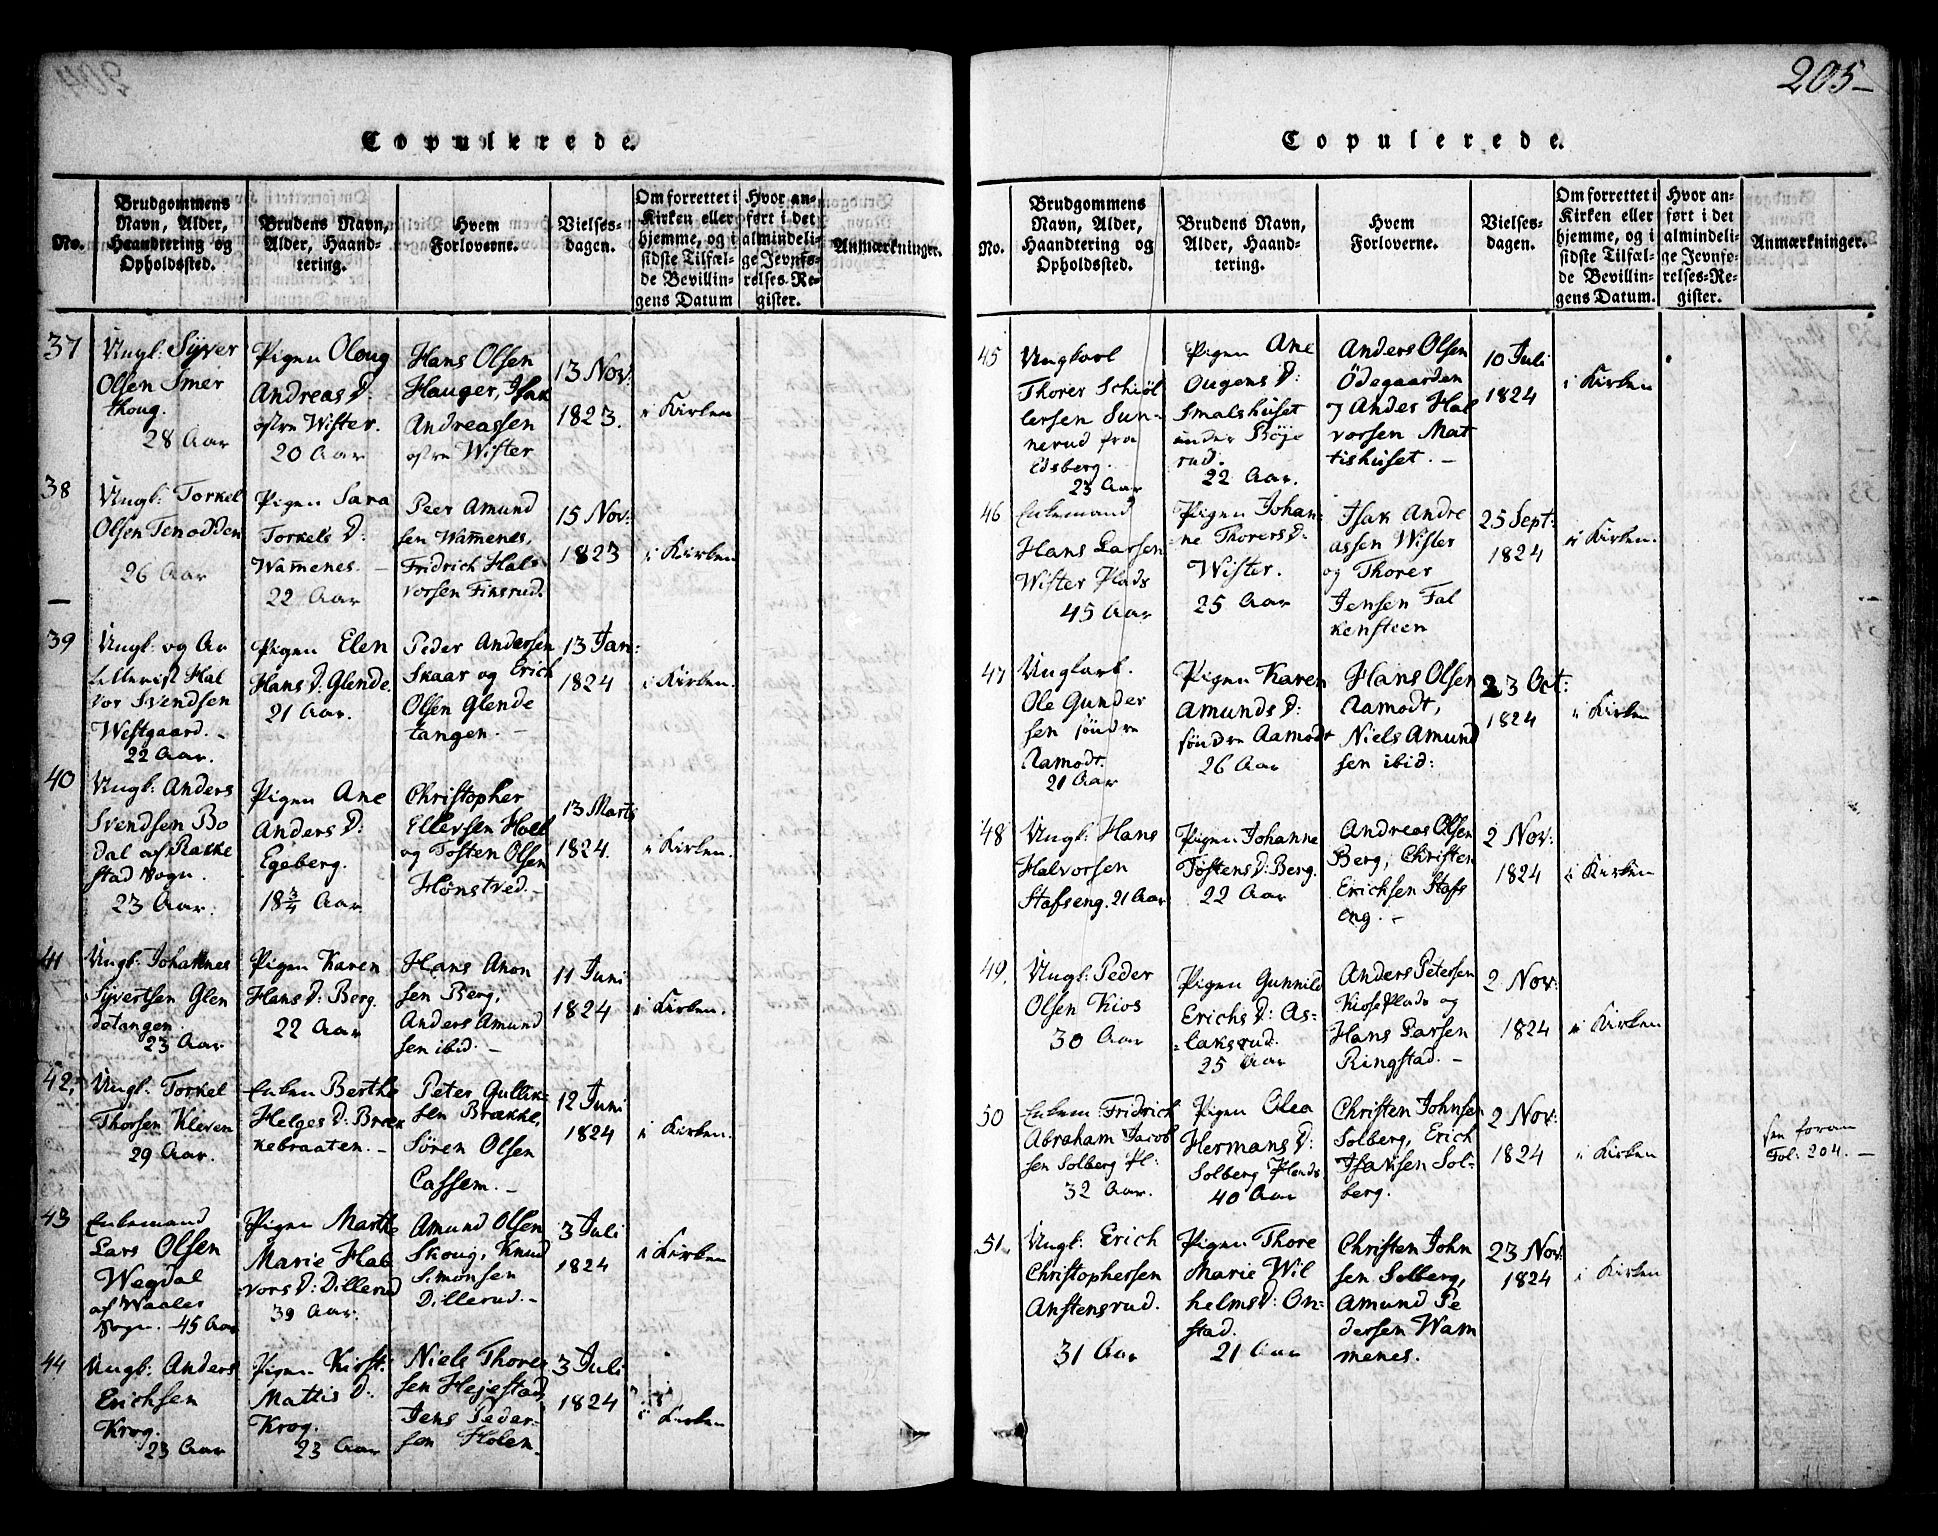 Copulerede.
No.
Brudgommens
Navn, Alder,
Haandtering og
Opholdssted.
Brudens Navn,
Alder, Haand-
tering.
Hvem
Forloverne.
Vielses-
dagen.
Om forrettet i
Kirken eller
hjemme, og i
sidste Tilfæl-
de Bevillin-
gens Datum
Hvor an-
ført i det
almindeli-
ge Jevnfø-
relses-Re-
gister.
Anmærkninger.
37
Ungk: Syver
Olsen Smer
thoug.
28 Aar
Pigen Oloug
Andreas D:
østre Wister.
20 Aar
Hans Olsen
Hauger, Isak
Andreassen
østre Wister
13 Nov:
1823.
i Kirken
38
Ungk: Torkel
Olsen Tenodden
26 Aar
Pigen Sara
Torkels D:
Wam̅enes. –
22 Aar
Peer Amund
sen Wam̅enes,
Fridrich Hal
vorsen Finsrud.
15 Nov:
1823
i Kirken
39
Ungk: og Ar
tillerist Hal
vor Svendsen
Westgaard. –
22 Aar.
Pigen Elen
Hans D: Glende.
21 Aar.
Peder Andersen
Skaar og Erich
Olsen Glende
tangen. –
13 Jan:
1824
i Kirken.
40
Ungk: Anders
Svendsen Bo
dal af Rakke
stad Sogn.
23 Aar.
Pigen Ane
Anders D:
Egeberg.
18 3/4 Aar
Christopher
Ellevsen Holt
og Tosten Olsen
Hønstved. –
13 Marti
1824.
i Kirken.
41
Ungk: Johannes
Syvertsen Glen
detangen.
23 Aar
Pigen Karen
Hans D: Berg.
22 Aar
Hans Anon
sen Berg,
Anders Amund
sen ibid. –
11 Juni
1824
i Kirken.
42,
Ungk: Torkel
Thorsen Kleven
29 Aar.
Enken Berthe
Helges D: Bræk
kebraaten. –
Peter Gullik-
sen Brække,
Sören Olsen
Cassem. –
12 Juni
1824
i Kirken.
43
Enkemand
Lars Olsen
Wegdal
af Waaler
Sogn. 45 Aar
Pigen Marthe
Marie Hal
vors D: Dillerud
39 Aar.
Amund Olsen
Skoug, Knud
Simonsen
Dillerud. –
3 Juli
1824
i Kirken
44
Ungk: Anders
Erichsen
Krog.
23 Aar
Pigen Kirst.
Mattis D:
Krog.
23 Aar
Niels Thores
sen Hejestad,
Jens Peder-
sen Holen –
3 Juli
1824
i Kirken
205
Copulerede.
No.
Brudgommens
Navn, Alder,
Haandtering og
Opholdssted.
Brudens Navn,
Alder, Haand-
tering.
Hvem
Forloverne.
Vielses-
dagen.
Om forrettet i
Kirken eller
hjemme, og i
sidste Tilfæl-
de Bevillin-
gens Datum.
Hvor an-
ført i det
almindeli-
ge Jevnfø-
relses-Re-
gister.
Anmærkninger.
45
Ungkarl
Thorer Schiøl
lersen Sun-
nerud fra
Edsberg.
23 Aar
Pigen Ane
Ougens D:
Smalshuset
under Böje
rud.
22 Aar.
Anders Olsen
Ödegaarden
7 Andes Hal
vorsen Mat
tishuset. –
10 Juli
1824
i Kirken
46
Enkemand
Hans Larsen
Wister Plads
45 Aar
Pigen Johan-
ne Thorers D:
Wister.
25 Aar
Isak Andre
assen Wister
og Thorer
Jensen Fal
kensteen
25 Sept:
1824
i Kirken.
47
Ungkarl.
Ole Gunder
sen søndre
Aamodt.
21 Aar
Pigen Karen
Amunds D:
søndre Aamodt
26 Aar
Hans Olsen
Aamodt,
Niels Amund
sen ibid:
23 Oct:
1824
i Kirken
48
Ungk: Hans
Halvorsen
Stafseng. 21 Aar
Pigen Johanne
Tostens D: Berg.
22 Aar
Andreas Olsen
Berg, Christen
Erichsen Stafs
eng. –
2 Nov:
1824
i Kirken
49.
Ungk: Peder
Olsen Kios
30 Aar
Pigen Gunnild
Erichs D: As-
laksrud.
25 Aar
Anders Petersen
Kiose Plads og
Hans Larsen
Ringstad. –
2 Nov:
1824
i Kirken
50
Enkem: Fridrich
Abraham Jacob
sen Solberg Pl:
32 Aar.
Pigen Olea
Hermans D:
Solberg Plads
40 Aar
Christen Johnsen
Solberg, Erich
Isaksen Sol-
berg.
2 Nov:
1824
i Kirken
sen foran
Fol: 204. –
51.
Ungk: Erich
Christophersen
Anstensrud.
31 Aar
Pigen Thore
Marie Wil
helms D: On-
stad.
21 Aar
Christen John
sen Solberg,
Amund Pe
dersen Wam
menes.
23 Nov:
1824
i Kirken